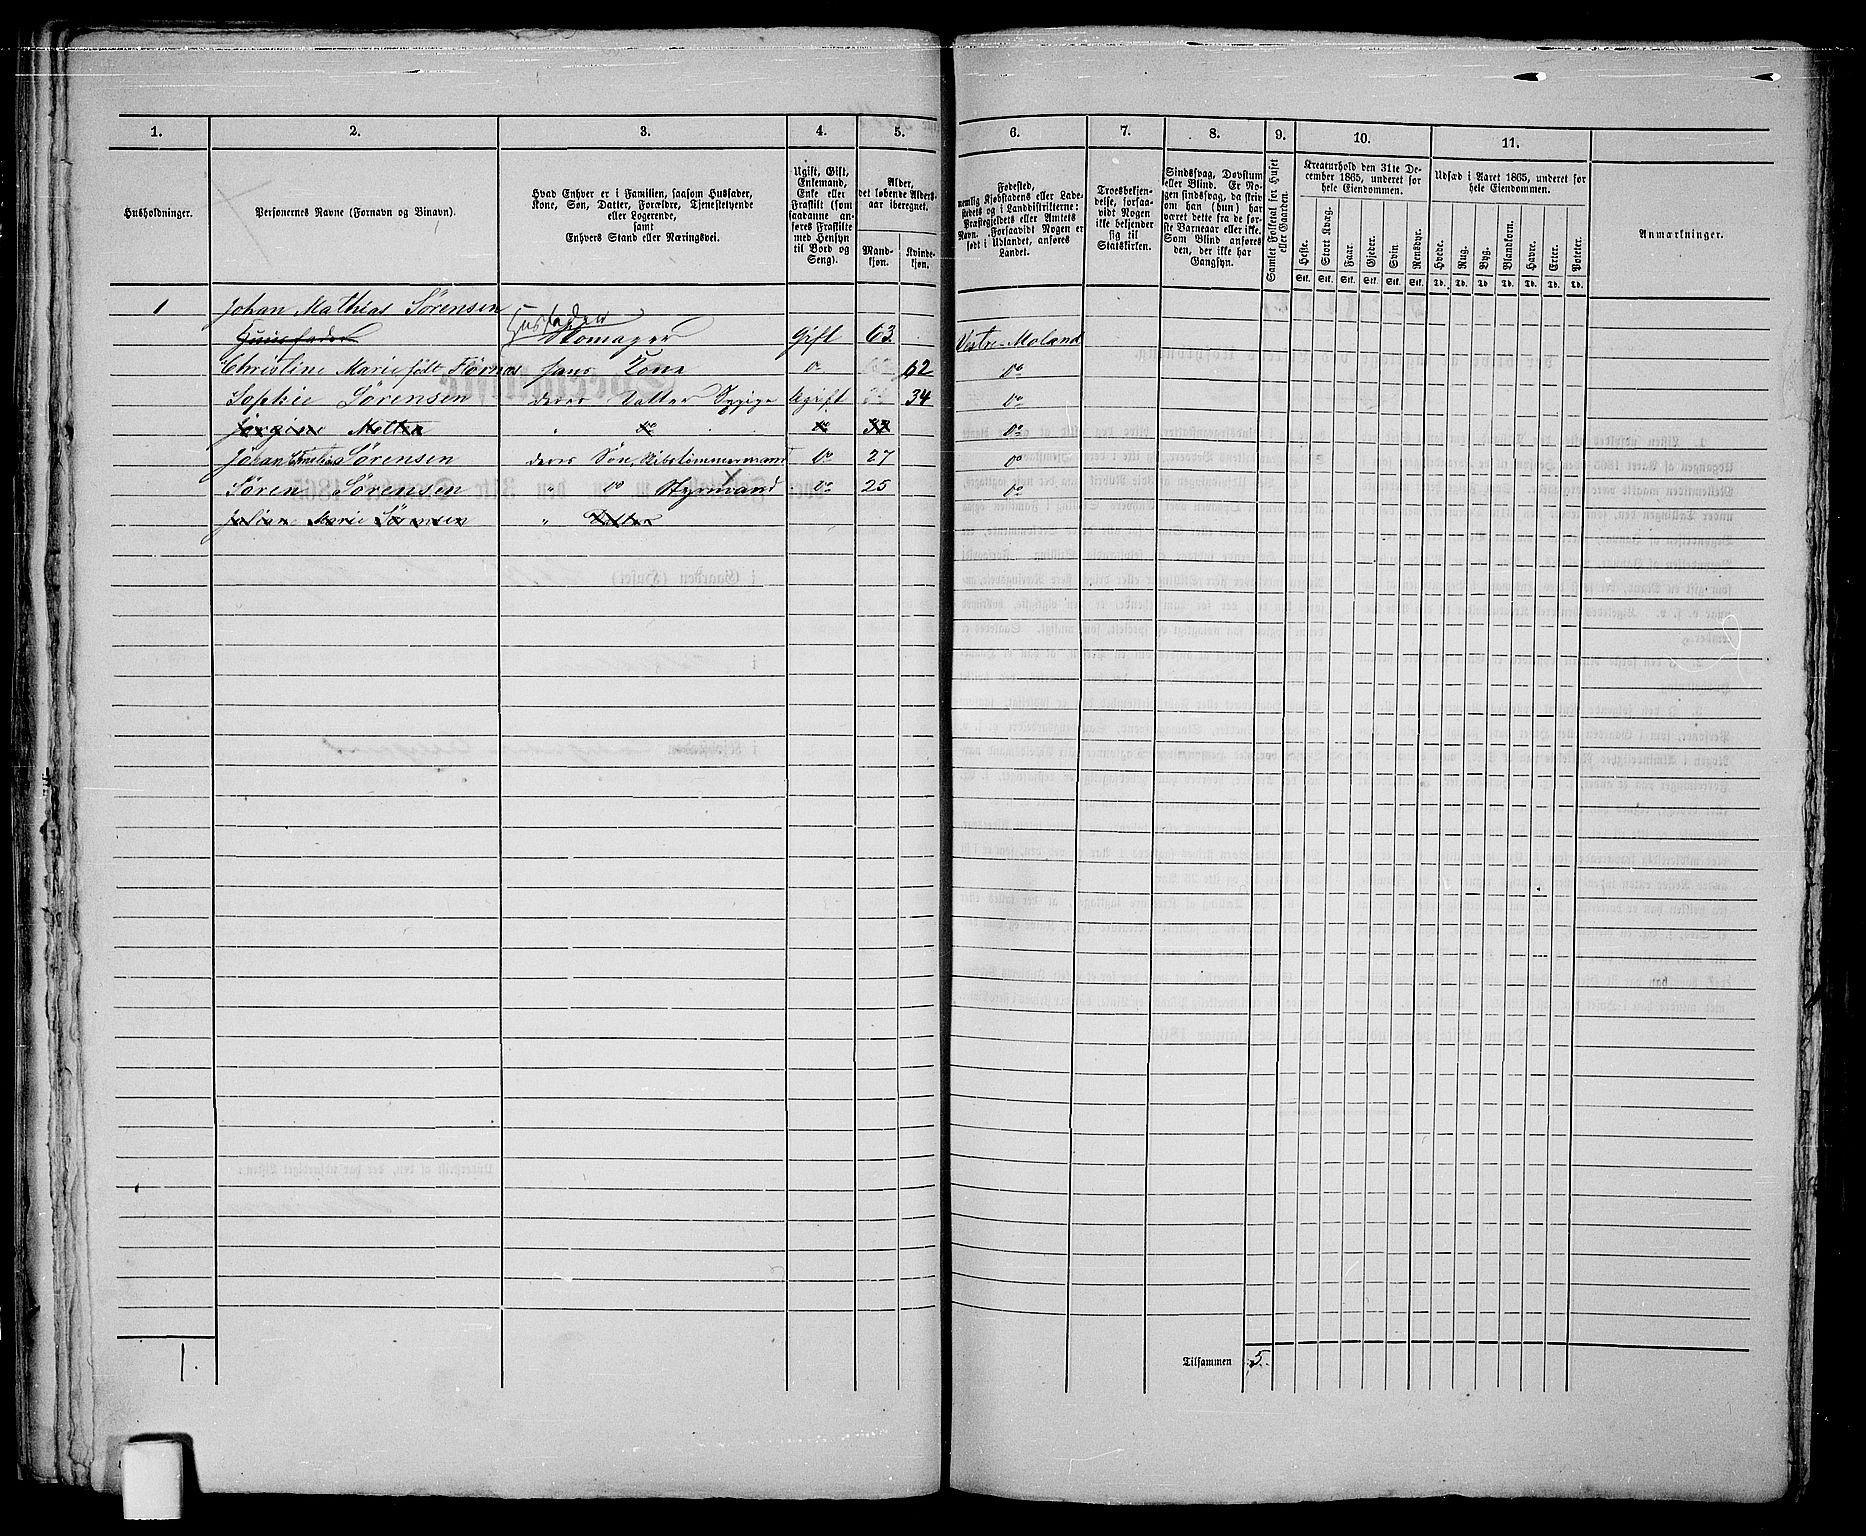 1. 2. 3. 4. 5. 6. 7. 8. 9. 10. 11.
Husholdninger.
Personernes Navne (Fornavn og Binavn).
Hvad Enhver er i Familien, saasom Husfader,
Kone, Søn, Datter, Forældre, Tjenestetyende
eller Logerende,
samt
Enhvers Stand eller Næringsvei.
Ugift, Gift,
Enkemand,
Enke eller
Fraskilt (som
saadanne an-
føres Fraskilte
med Hensyn
til Bord og
Seng).
Alder,
det løbende Alders-
aar iberegnet.
Mand-
kjøn.
Kvinde-
kjøn.
Fødested,
nemlig Kjøbstadens eller Lade-
stedets og i Landdistrikterne:
Præstegjeldets eller Amtets
Navn. (Forsaavidt Nogen er
født i Udlandet, anføres
Landet.
Troesbekjen-
delse, forsaa-
vidt Nogen
ikke bekjender
sig til
Statskirken.
Sindssvag, Døvstum
eller Blind. Er No-
gen sindssvag, da skriv
om han (hun) har
været dette fra de før-
ste Barneaar eller ikke.
Som Blind anføres
den, der ikke har
Gangsyn.
Samlet Folketal for Huset
eller Gaarden.
Kreaturhold den 31te De-
cember 1865, underet for
hele Eiendommen.
Heste. Stort Kvæg. Faar. Gjeder. Svin. Rensdyr.
Stk. Stk. Stk. Stk. Stk. Stk.
Udsæd i Aaret 1865, underet for
hele Eiendommen.
Hvede. Rug. Byg. Blandkorn. Havre. Erter. Poteter.
Td. Td. Td. Td. Td. Td. Td.
Anmærkninger.
1 Johan Mathias Sørensen Husfader
Huusfader Skomager Gift 63 Vestre-Moland
Christine Marie født Tørnes hans Kone do 62 do
Sophie Sørensen deres Datter Ugift 34 do
Jørgine Mathea " do do 32 do
Johan Sørensen deres Søn, Skibstømmermand do 27 do
Søren Sørensen do Styrmand do 25 do
Juliane Marie Sørensen " Datter
1.
Tilsammen 5.